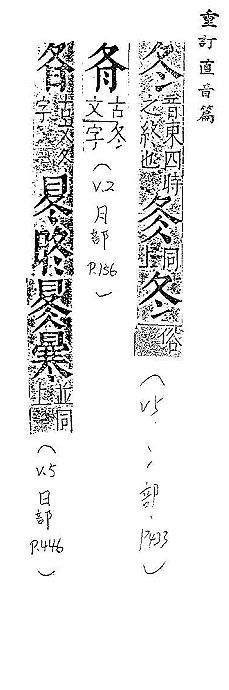 重訂直音篇
冬音東四時之終也同上冬俗(V5.冫部.P433)
古冬文字(V.2月部P.156)
古文冬字並同上(V.5日部P.446)